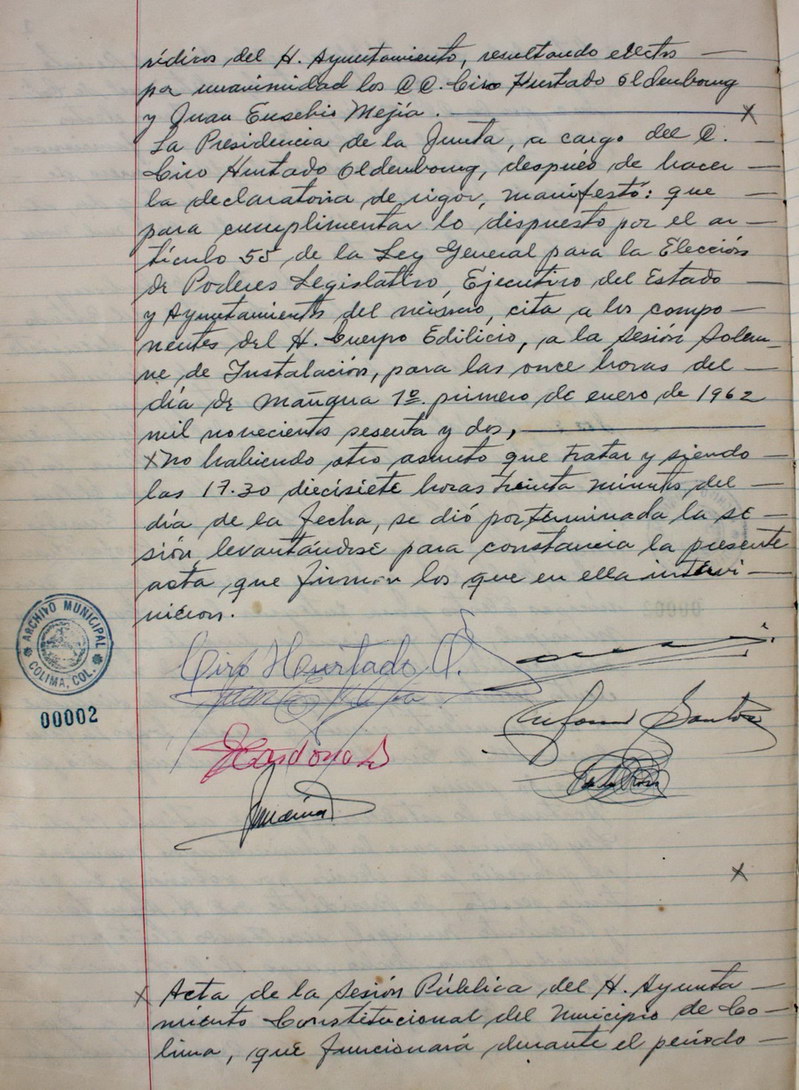 rídicos del H. Ayuntamiento, resultando electos —
por unanimidad los CC. Ciro Hurtado Oldenbourg
y Juan Eusebio Mejía. —
La Presidencia de la Junta, a cargo del C. —
Ciro Hurtado Oldenbourg, después de hacer —
la declaratoria de rigor, manifestó: que —
para cumplimentar lo dispuesto por el ar —
tículo 55 de la Ley General para la Elección
de Poderes Legislativo, Ejecutivo del Estado
y Ayuntamientos del mismo, cita a los compo —
nentes del H. Cuerpo Edilicio, a la Sesión Solem-
ne de Instalación, para las once horas del —
día de mañana 1º. primero de enero de 1962
mil novecientos sesenta y dos, —
x No habiendo otro asunto que tratar y siendo —
las 17.30 diecisiete horas treinta minutos del —
día de la fecha, se dió por terminada la se —
sión levantándose para constancia la presente
acta que firman los que en ella intervi —
nieron.
Ciro Hurtado O.
Santos
ARCHIVO MUNICIPAL
COLIMA, COL.
00002
x Acta de la Sesión Pública del H. Ayunta —
miento Constitucional del Municipio de Co —
lima, que funcionará durante el período —